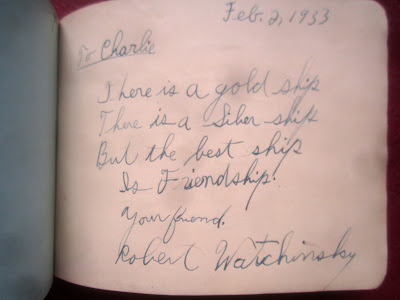 Feb. 2, 1933
To Charlie
There is a gold ship
There is a Silber ship
But the best ship
Is Friendship.
Your friend.
Robert Watchinsky